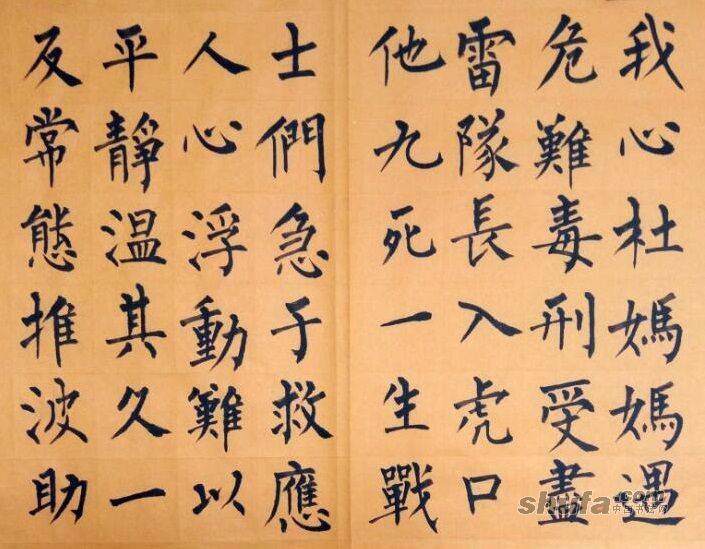 我心杜媽媽遇
危難毒刑受盡
雷隊長入虎口
他九死一生戰
士們急于救應
人心浮動難以
平靜温其久一
反常態推波助
shufa.com
中国书法网